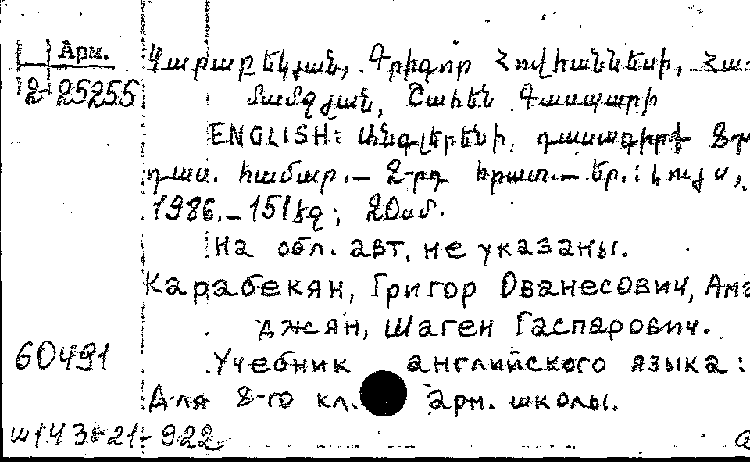 Арм.
2-25255
Կարաբեկյան, Գրիգոր Հովհաննեսի, Հա-
մամջյան, Շահեն Գասպարի
ENGLISH: Անգլերենի դասագիրք 8-րդ
դաս. համար.— 2-րդ հրատ.— Եր.: Լույս,
1986.—151 էջ; 20սմ.
На обл. авт. не указаны.
Карабекян, Григор Ованесович, Ама
джян, Шаген Гаспарович.
60491
Учебник английского языка:
Для 8-го кл. арм. школы.
922